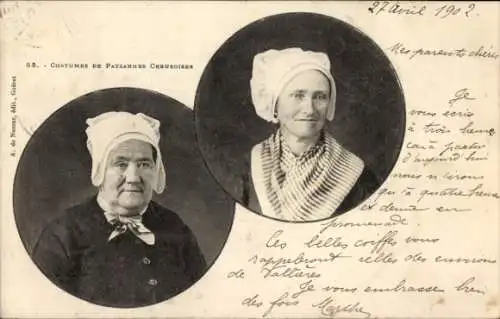 68. - COSTUMES DE PAYSANNES CREUSOISES
A. de Nussac, édit., Guéret
27 Avril 1902
Mes parents chéris
Je
vous écris
à trois heures
car à partir
d'aujourd'hui
nous n'irons
qu'à quatre heures
et demie en
promenade.
Ces belles coiffes vous
rappelleront celles des environs
de Vallières
Je vous embrasse bien
des fois Marthe